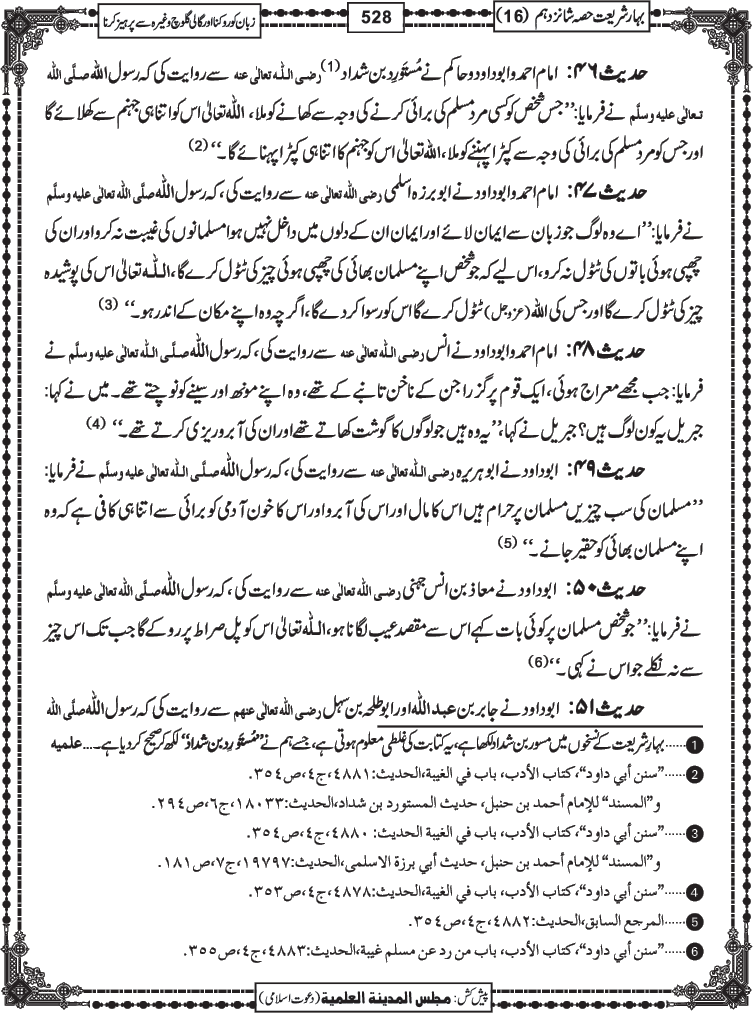 بہارِ شریعت حصہ شانزدہم (16)
528
زبان کو روکنا اور گالی گلوچ وغیرہ سے پرہیز کرنا
حدیث ۴۶: امام احمد و ابو داود و حاکم نے مُسْتَورِد بن شداد(1) رضی اللہ تعالٰی عنہ سے روایت کی کہ رسول اللہ صلَّی اللہ
تعالٰی علیہ وسلَّم نے فرمایا: ’’جس شخص کو کسی مرد مسلم کی برائی کرنے کی وجہ سے کھانے کو ملا، اللہ تعالیٰ اس کو اتنا ہی جہنم سے کھلائے گا
اور جس کو مرد مسلم کی برائی کی وجہ سے کپڑا پہننے کو ملا، اللہ تعالیٰ اس کو جہنم کا اتنا ہی کپڑا پہنائے گا۔‘‘ (2)
حدیث ۴۷: امام احمد و ابو داود نے ابو برزہ اسلمی رضی اللہ تعالٰی عنہ سے روایت کی، کہ رسول اللہ صلَّی اللہ تعالٰی علیہ وسلَّم
نے فرمایا: ’’اے وہ لوگ جو زبان سے ایمان لائے اور ایمان ان کے دلوں میں داخل نہیں ہوا مسلمانوں کی غیبت نہ کرو اور ان کی
چھپی ہوئی باتوں کی ٹٹول نہ کرو، اس لیے کہ جو شخص اپنے مسلمان بھائی کی چھپی ہوئی چیز کی ٹٹول کرے گا، اللہ تعالیٰ اس کی پوشیدہ
چیز کی ٹٹول کرے گا اور جس کی اللہ (عزوجل) ٹٹول کرے گا اس کو رسوا کر دے گا، اگرچہ وہ اپنے مکان کے اندر ہو۔‘‘ (3)
حدیث ۴۸: امام احمد و ابو داود نے انس رضی اللہ تعالٰی عنہ سے روایت کی، کہ رسول اللہ صلَّی اللہ تعالٰی علیہ وسلَّم نے
فرمایا: جب مجھے معراج ہوئی، ایک قوم پر گزرا جن کے ناخن تانبے کے تھے، وہ اپنے مونھ اور سینے کو نوچتے تھے۔ میں نے کہا:
جبریل یہ کون لوگ ہیں؟ جبریل نے کہا، ’’یہ وہ ہیں جو لوگوں کا گوشت کھاتے تھے اور ان کی آبروریزی کرتے تھے۔‘‘ (4)
حدیث ۴۹: ابو داود نے ابو ہریرہ رضی اللہ تعالٰی عنہ سے روایت کی، کہ رسول اللہ صلَّی اللہ تعالٰی علیہ وسلَّم نے فرمایا:
’’مسلمان کی سب چیزیں مسلمان پر حرام ہیں اس کا مال اور اس کی آبرو اور اس کا خون آدمی کو برائی سے اتنا ہی کافی ہے کہ وہ
اپنے مسلمان بھائی کو حقیر جانے۔‘‘ (5)
حدیث ۵۰: ابو داود نے معاذ بن انس جہنی رضی اللہ تعالٰی عنہ سے روایت کی، کہ رسول اللہ صلَّی اللہ تعالٰی علیہ وسلَّم
نے فرمایا: ’’جو شخص مسلمان پر کوئی بات کہے اس سے مقصد عیب لگانا ہو، اللہ تعالیٰ اس کو پل صراط پر روکے گا جب تک اس چیز
سے نہ نکلے جو اس نے کہی۔‘‘(6)
حدیث ۵۱: ابو داود نے جابر بن عبد اللہ اور ابو طلحہ بن سہل رضی اللہ تعالٰی عنہم سے روایت کی کہ رسول اللہ صلَّی اللہ
1 ......بہارِ شریعت کے نسخوں میں مسور بن شداد لکھا ہے، یہ کتابت کی غلطی معلوم ہوتی ہے، جسے ہم نے ’’مُسْتَورِد بن شداد‘‘ لکھ کر صحیح کر دیا ہے۔... علمیہ
2 ......”سنن أبي داود“،کتاب الأدب، باب في الغیبة،الحدیث:٤٨٨١،ج٤،ص٣٥٤.
و”المسند“ للإمام أحمد بن حنبل، حدیث المستورد بن شداد،الحدیث:١٨٠٣٣،ج٦،ص٢٩٤.
3 ......”سنن أبي داود“،کتاب الأدب، باب في الغیبة الحدیث: ٤٨٨٠،ج٤،ص٣٥٤.
و”المسند“ للإمام أحمد بن حنبل، حدیث أبي برزة الاسلمی،الحدیث:١٩٧٩٧،ج٧،ص١٨١.
4 ......”سنن أبي داود“،کتاب الأدب، باب في الغیبة،الحدیث:٤٨٧٨،ج٤،ص٣٥٣.
5 ......المرجع السابق،الحدیث:٤٨٨٢،ج٤،ص٣٥٤.
6 ......”سنن أبي داود“،کتاب الأدب، باب من رد عن مسلم غیبة،الحدیث:٤٨٨٣،ج٤،ص٣٥٥.
پیش کش: مجلس المدینة العلمیة (دعوت اسلامی)